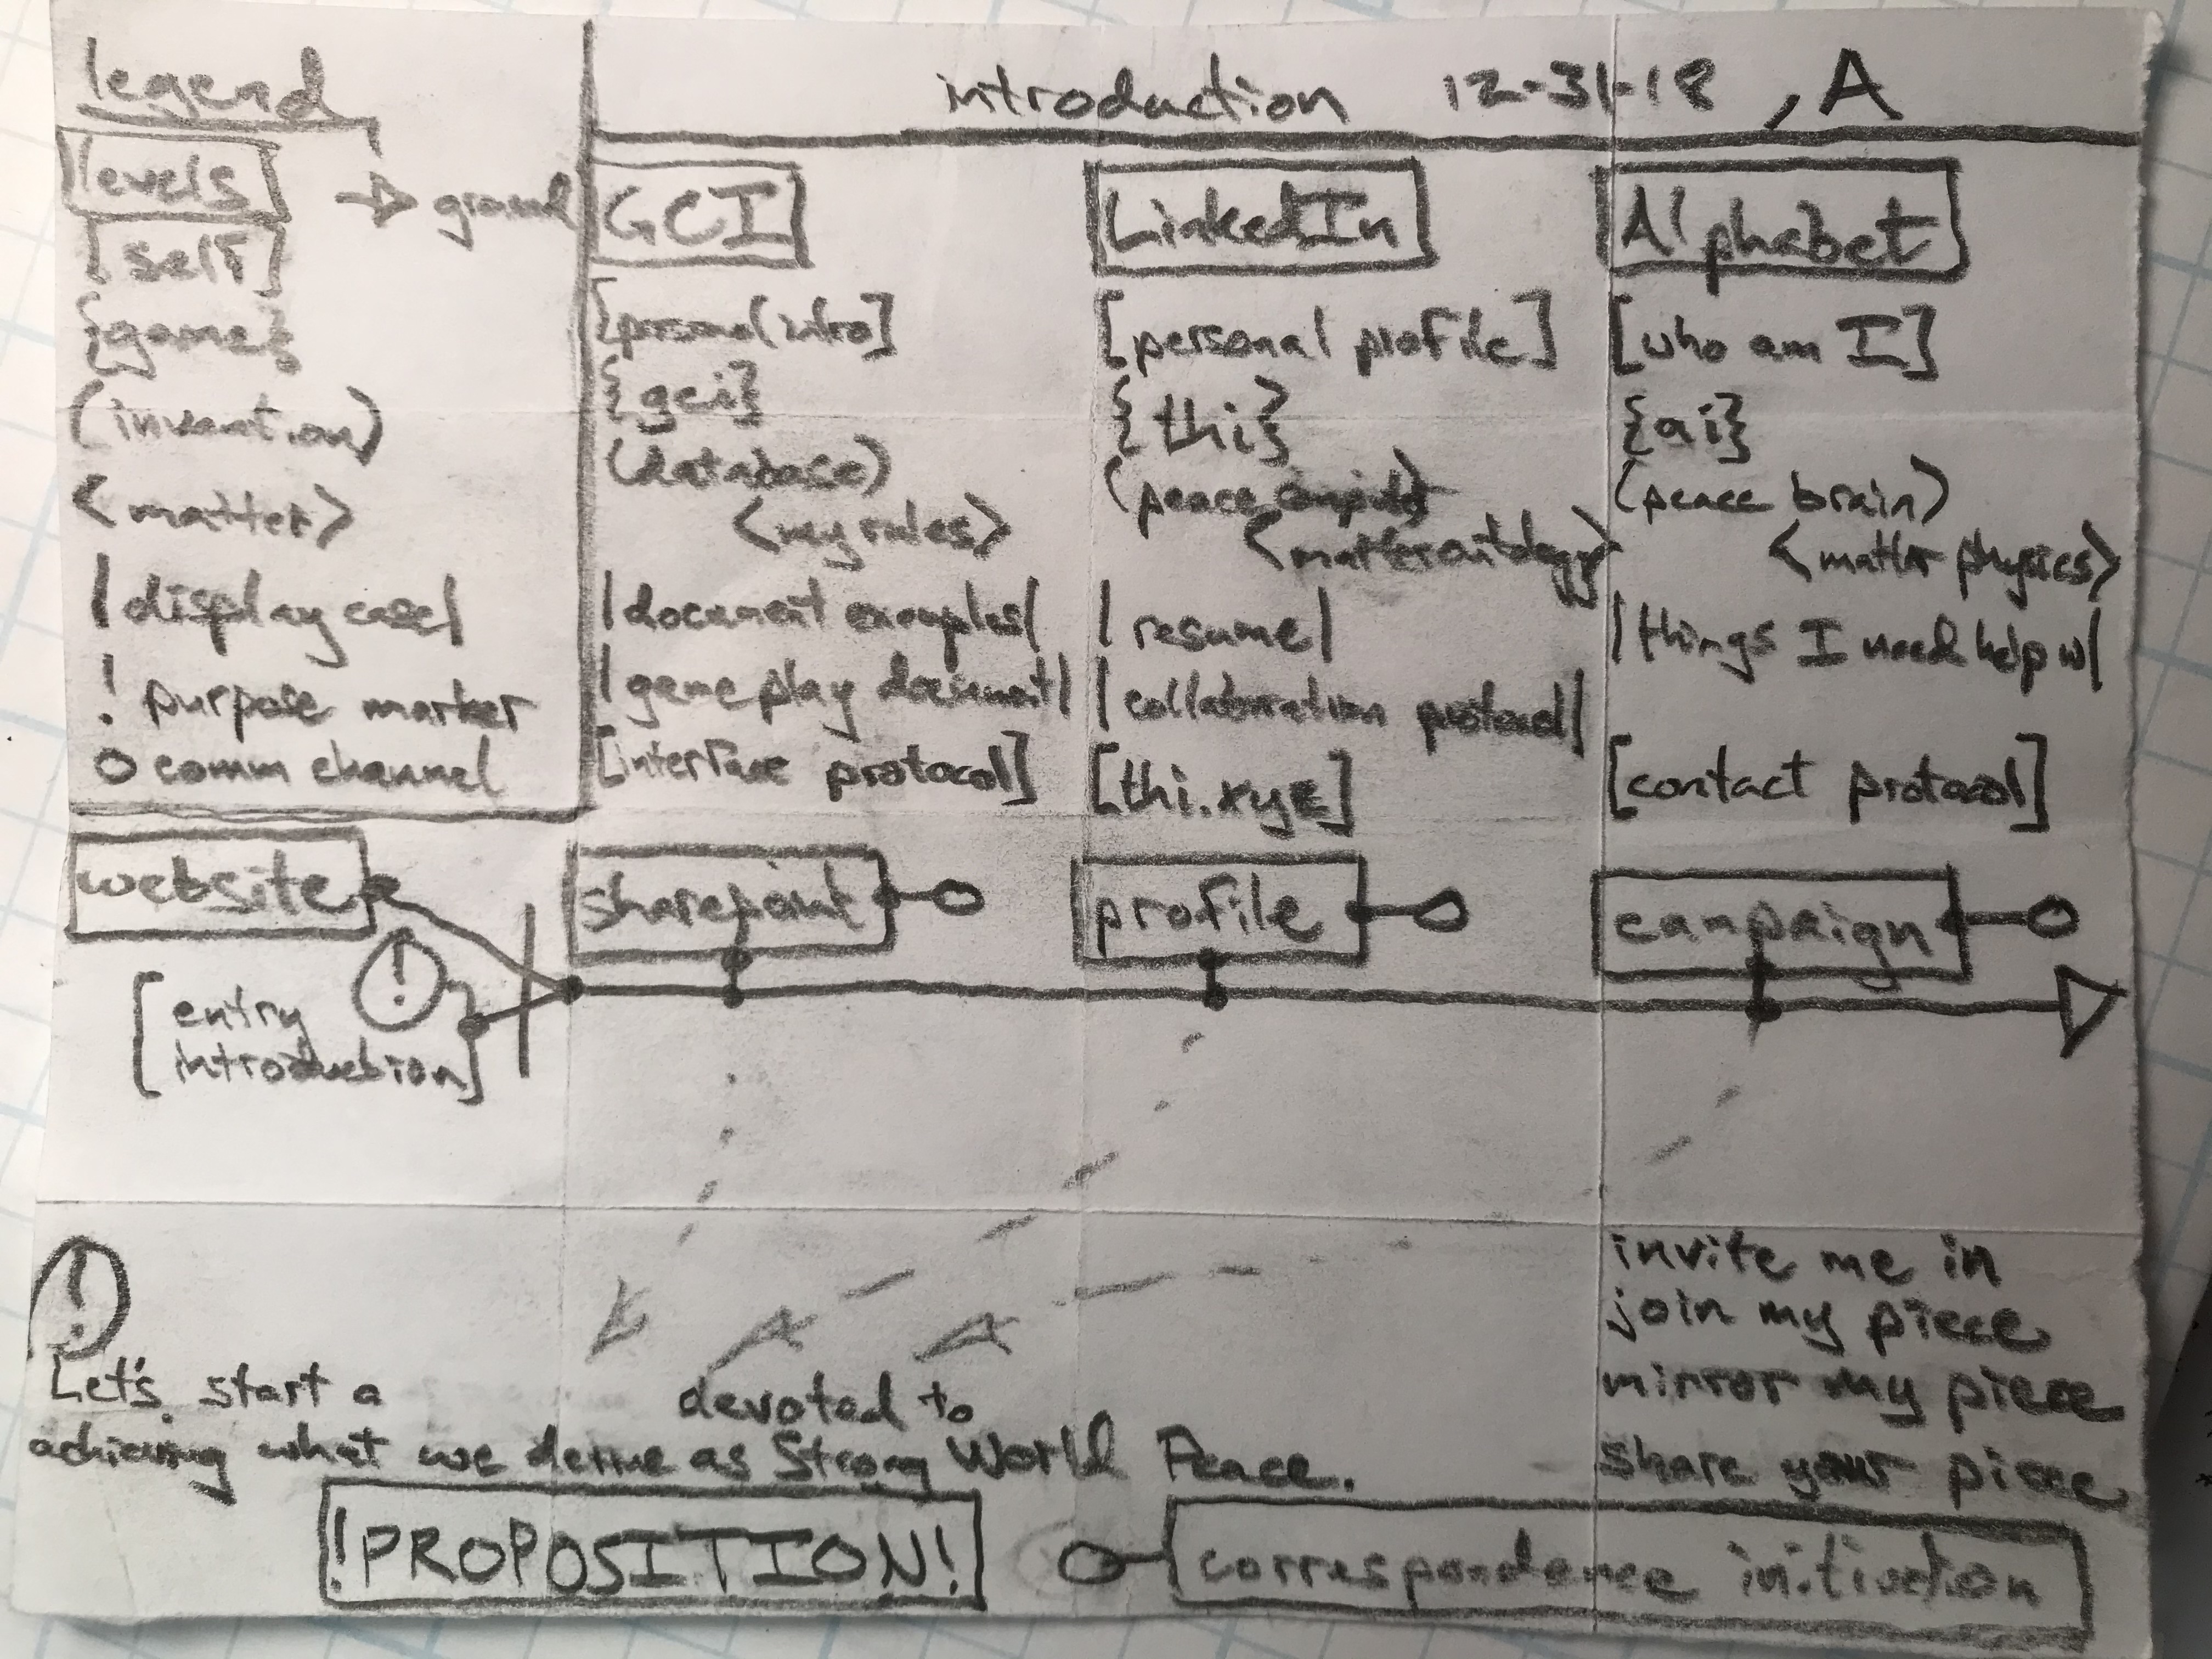 legend
levels
→ ground
[self]
{game}
(invention)
<matter>
|display case|
! purpose marker
O comm channel
introduction 12-31-18 , A
GCI
[personal intro]
{gci}
(database)
<my rules>
|document examples|
|game play document|
[interface protocol]
LinkedIn
[personal profile]
{thi}
(peace
<matter ontology>
|resume|
|collaboration protocol|
[thi.xyz]
Alphabet
[who am I]
{ai}
(peace brain)
<matter physics>
|things I need help w|
[contact protocol]
website
sharepoint
profile
campaign
!
[entry
introduction]
!
Let's start a devoted to
achieving what we define as Strong World Peace.
invite me in
join my piece
mirror my piece
share your piece
!PROPOSITION!
correspondence initiation